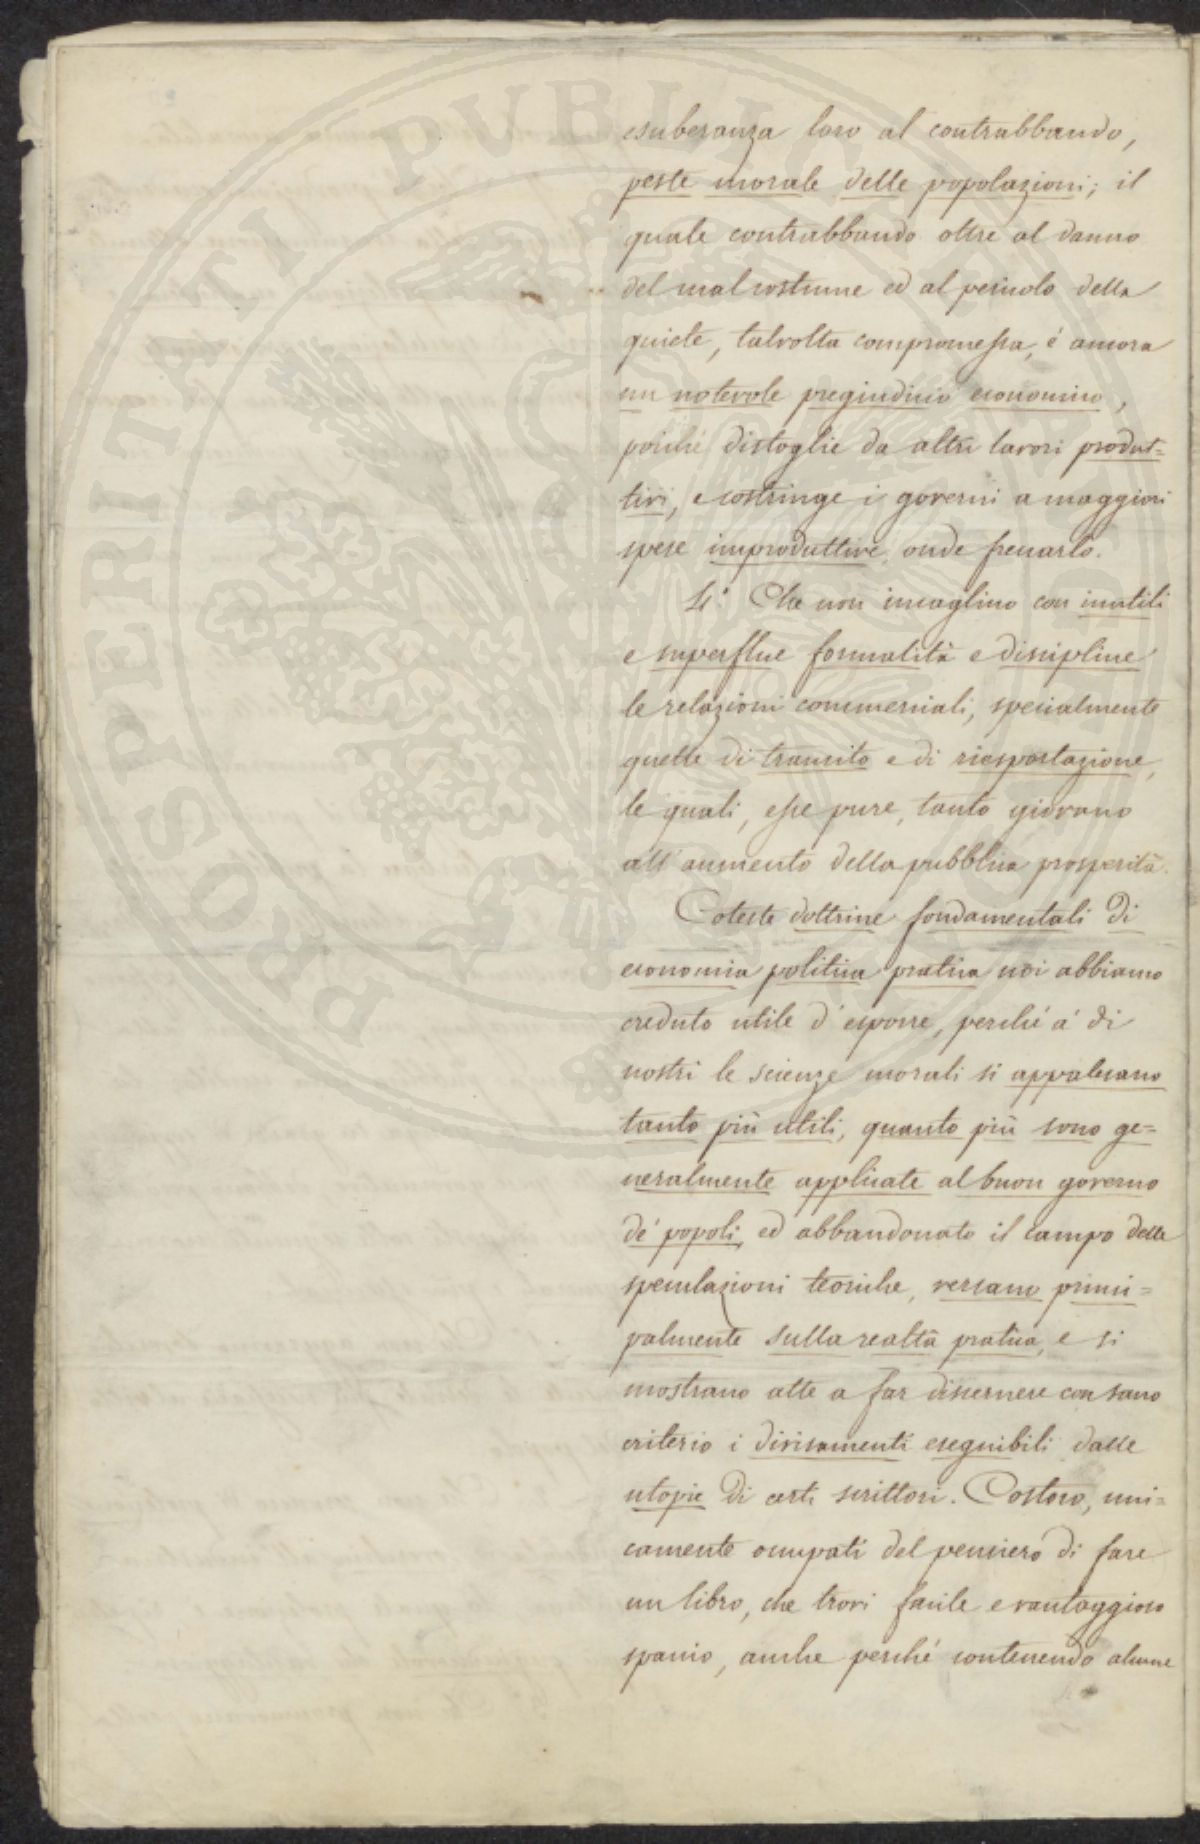 esuberanza loro al contrabbando,
peste morale delle popolazioni; il
quale contrabbando oltre al danno
del mal costume ed al pericolo della
quiete, talvolta compromessa, é ancora
un notevole pregiudicio economico,
poiché distoglie da altri lavori produt=
tivi, e costringe i governi a maggiori
spese improduttive, onde frenarlo.
4.° Che non incaglino con inutili
e superflue formalità e discipline
le relazioni commerciali, specialmente
quelle di transito e di riesportazione,
le quali, esse pure, tanto giovano
all'aumento della pubblica prosperità.
Coteste dottrine fondamentali di
economia politica pratica noi abbiamo
creduto utile d'esporre, perché a' dì
nostri le scienze morali si appalesano
tanto più utili, quanto più sono ge=
neralmente applicate al buon governo
de' popoli, ed abbandonato il campo delle
speculazioni teoriche, versano princi=
palmente sulla realtà pratica, e si
mostrano atte a far discernere con sano
criterio i divisamenti eseguibili dalle
utopie di certi scrittori. Costoro, uni=
camente occupati del pensiero di fare
un libro, che trovi facile e vantaggioso
spaccio, anche perché contenendo alcune
PROSPERITATI PUBLICAE